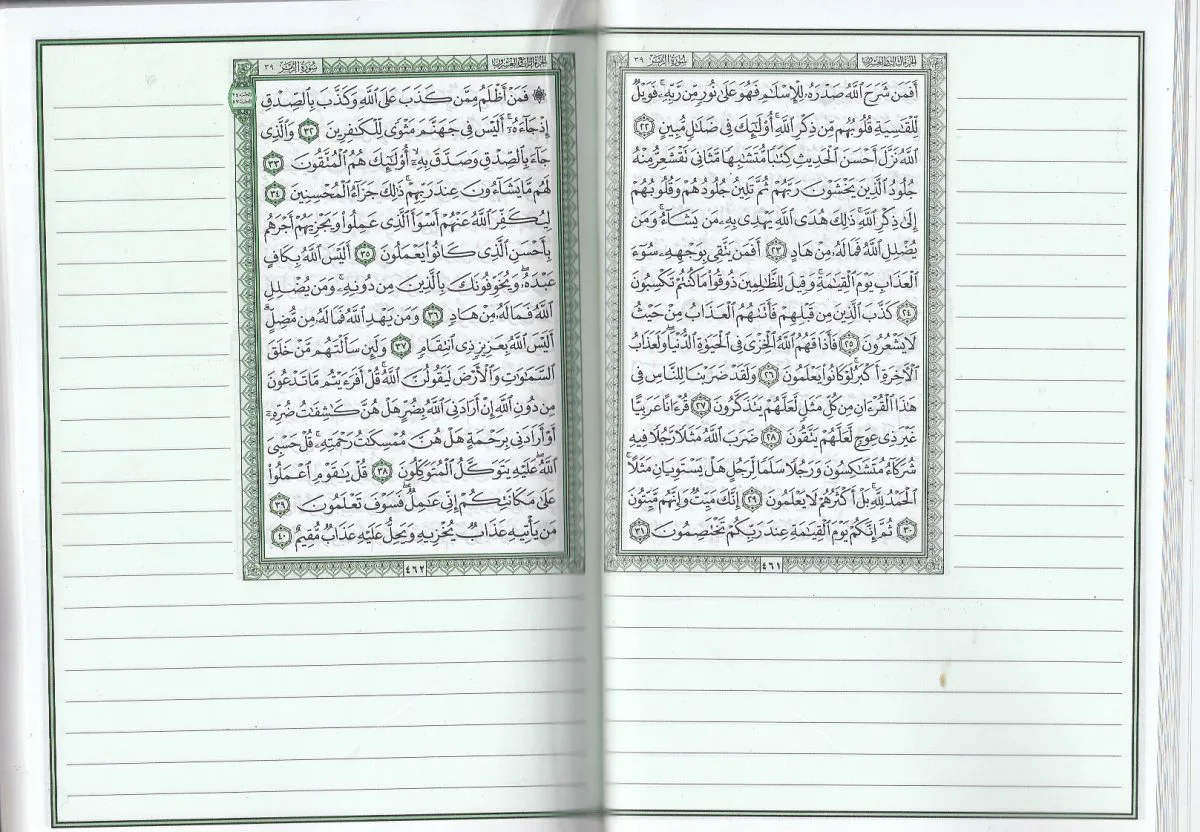 سورة الزمر ٣٩
الجزء الثالث والعشرون
أَفَمَن شَرَحَ ٱللَّهُ صَدْرَهُۥ لِلْإِسْلَٰمِ فَهُوَ عَلَىٰ نُورٍ مِّن رَّبِّهِۦ ۚ فَوَيْلٌ
لِّلْقَٰسِيَةِ قُلُوبُهُم مِّن ذِكْرِ ٱللَّهِ ۚ أُو۟لَٰٓئِكَ فِى ضَلَٰلٍ مُّبِينٍ ٢٢
ٱللَّهُ نَزَّلَ أَحْسَنَ ٱلْحَدِيثِ كِتَٰبًا مُّتَشَٰبِهًا مَّثَانِىَ تَقْشَعِرُّ مِنْهُ
جُلُودُ ٱلَّذِينَ يَخْشَوْنَ رَبَّهُمْ ثُمَّ تَلِينُ جُلُودُهُمْ وَقُلُوبُهُمْ
إِلَىٰ ذِكْرِ ٱللَّهِ ۚ ذَٰلِكَ هُدَى ٱللَّهِ يَهْدِى بِهِۦ مَن يَشَآءُ ۚ وَمَن
يُضْلِلِ ٱللَّهُ فَمَا لَهُۥ مِنْ هَادٍ ٢٣ أَفَمَن يَتَّقِى بِوَجْهِهِۦ سُوٓءَ
ٱلْعَذَابِ يَوْمَ ٱلْقِيَٰمَةِ ۚ وَقِيلَ لِلظَّٰلِمِينَ ذُوقُوا۟ مَا كُنتُمْ تَكْسِبُونَ
٢٤ كَذَّبَ ٱلَّذِينَ مِن قَبْلِهِمْ فَأَتَىٰهُمُ ٱلْعَذَابُ مِنْ حَيْثُ
لَا يَشْعُرُونَ ٢٥ فَأَذَاقَهُمُ ٱللَّهُ ٱلْخِزْىَ فِى ٱلْحَيَوٰةِ ٱلدُّنْيَا ۖ وَلَعَذَابُ
ٱلْءَاخِرَةِ أَكْبَرُ ۚ لَوْ كَانُوا۟ يَعْلَمُونَ ٢٦ وَلَقَدْ ضَرَبْنَا لِلنَّاسِ فِى
هَٰذَا ٱلْقُرْءَانِ مِن كُلِّ مَثَلٍ لَّعَلَّهُمْ يَتَذَكَّرُونَ ٢٧ قُرْءَانًا عَرَبِيًّا
غَيْرَ ذِى عِوَجٍ لَّعَلَّهُمْ يَتَّقُونَ ٢٨ ضَرَبَ ٱللَّهُ مَثَلًا رَّجُلًا فِيهِ
شُرَكَآءُ مُتَشَٰكِسُونَ وَرَجُلًا سَلَمًا لِّرَجُلٍ هَلْ يَسْتَوِيَانِ مَثَلًا ۚ
ٱلْحَمْدُ لِلَّهِ ۚ بَلْ أَكْثَرُهُمْ لَا يَعْلَمُونَ ٢٩ إِنَّكَ مَيِّتٌ وَإِنَّهُم مَّيِّتُونَ
٣٠ ثُمَّ إِنَّكُمْ يَوْمَ ٱلْقِيَٰمَةِ عِندَ رَبِّكُمْ تَخْتَصِمُونَ ٣١
٤٦١
الجزء الرابع والعشرون
سورة الزمر ٣٩
۞ فَمَنْ أَظْلَمُ مِمَّن كَذَبَ عَلَى ٱللَّهِ وَكَذَّبَ بِٱلصِّدْقِ
إِذْ جَآءَهُۥٓ ۚ أَلَيْسَ فِى جَهَنَّمَ مَثْوًى لِّلْكَٰفِرِينَ ٣٢ وَٱلَّذِى
جَآءَ بِٱلصِّدْقِ وَصَدَّقَ بِهِۦٓ ۙ أُو۟لَٰٓئِكَ هُمُ ٱلْمُتَّقُونَ ٣٣
لَهُم مَّا يَشَآءُونَ عِندَ رَبِّهِمْ ۚ ذَٰلِكَ جَزَآءُ ٱلْمُحْسِنِينَ ٣٤
لِيُكَفِّرَ ٱللَّهُ عَنْهُمْ أَسْوَأَ ٱلَّذِى عَمِلُوا۟ وَيَجْزِيَهُمْ أَجْرَهُم
بِأَحْسَنِ ٱلَّذِى كَانُوا۟ يَعْمَلُونَ ٣٥ أَلَيْسَ ٱللَّهُ بِكَافٍ
عَبْدَهُۥ ۖ وَيُخَوِّفُونَكَ بِٱلَّذِينَ مِن دُونِهِۦ ۚ وَمَن يُضْلِلِ
ٱللَّهُ فَمَا لَهُۥ مِنْ هَادٍ ٣٦ وَمَن يَهْدِ ٱللَّهُ فَمَا لَهُۥ مِن مُّضِلٍّ ۗ
أَلَيْسَ ٱللَّهُ بِعَزِيزٍ ذِى ٱنتِقَامٍ ٣٧ وَلَئِن سَأَلْتَهُم مَّنْ خَلَقَ
ٱلسَّمَٰوَٰتِ وَٱلْأَرْضَ لَيَقُولُنَّ ٱللَّهُ ۚ قُلْ أَفَرَءَيْتُم مَّا تَدْعُونَ
مِن دُونِ ٱللَّهِ إِنْ أَرَادَنِىَ ٱللَّهُ بِضُرٍّ هَلْ هُنَّ كَٰشِفَٰتُ ضُرِّهِۦٓ
أَوْ أَرَادَنِى بِرَحْمَةٍ هَلْ هُنَّ مُمْسِكَٰتُ رَحْمَتِهِۦ ۚ قُلْ حَسْبِىَ
ٱللَّهُ ۖ عَلَيْهِ يَتَوَكَّلُ ٱلْمُتَوَكِّلُونَ ٣٨ قُلْ يَٰقَوْمِ ٱعْمَلُوا۟
عَلَىٰ مَكَانَتِكُمْ إِنِّى عَٰمِلٌ ۖ فَسَوْفَ تَعْلَمُونَ ٣٩
مَن يَأْتِيهِ عَذَابٌ يُخْزِيهِ وَيَحِلُّ عَلَيْهِ عَذَابٌ مُّقِيمٌ ٤٠
٤٦٢